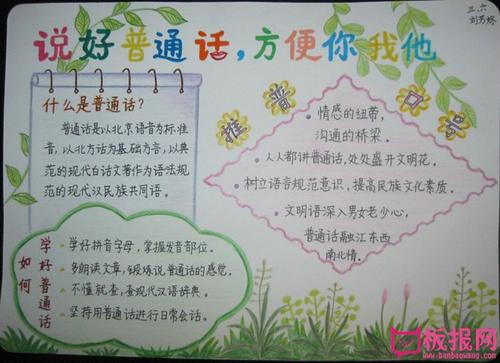 三.六
说好普通话,方便你我他
什么是普通话?
普通话是以北京语音为标准
音,以北方话为基础方言,以典
范的现代白话文著作为语法规
范的现代汉民族共同语。
推普口号
·情感的纽带,
沟通的桥梁。
·人人都讲普通话,处处盛开文明花。
·树立语音规范意识,提高民族文化素质。
·文明语深入男女老少心,
普通话融江东西
南北情。
如何学好普通话
·学好拼音字母,掌握发音部位。
·多朗读文章,锻炼说普通话的感觉。
·不懂就查,查现代汉语辞典。
·坚持用普通话进行日常会话。
板报网
www.banbaowang.com